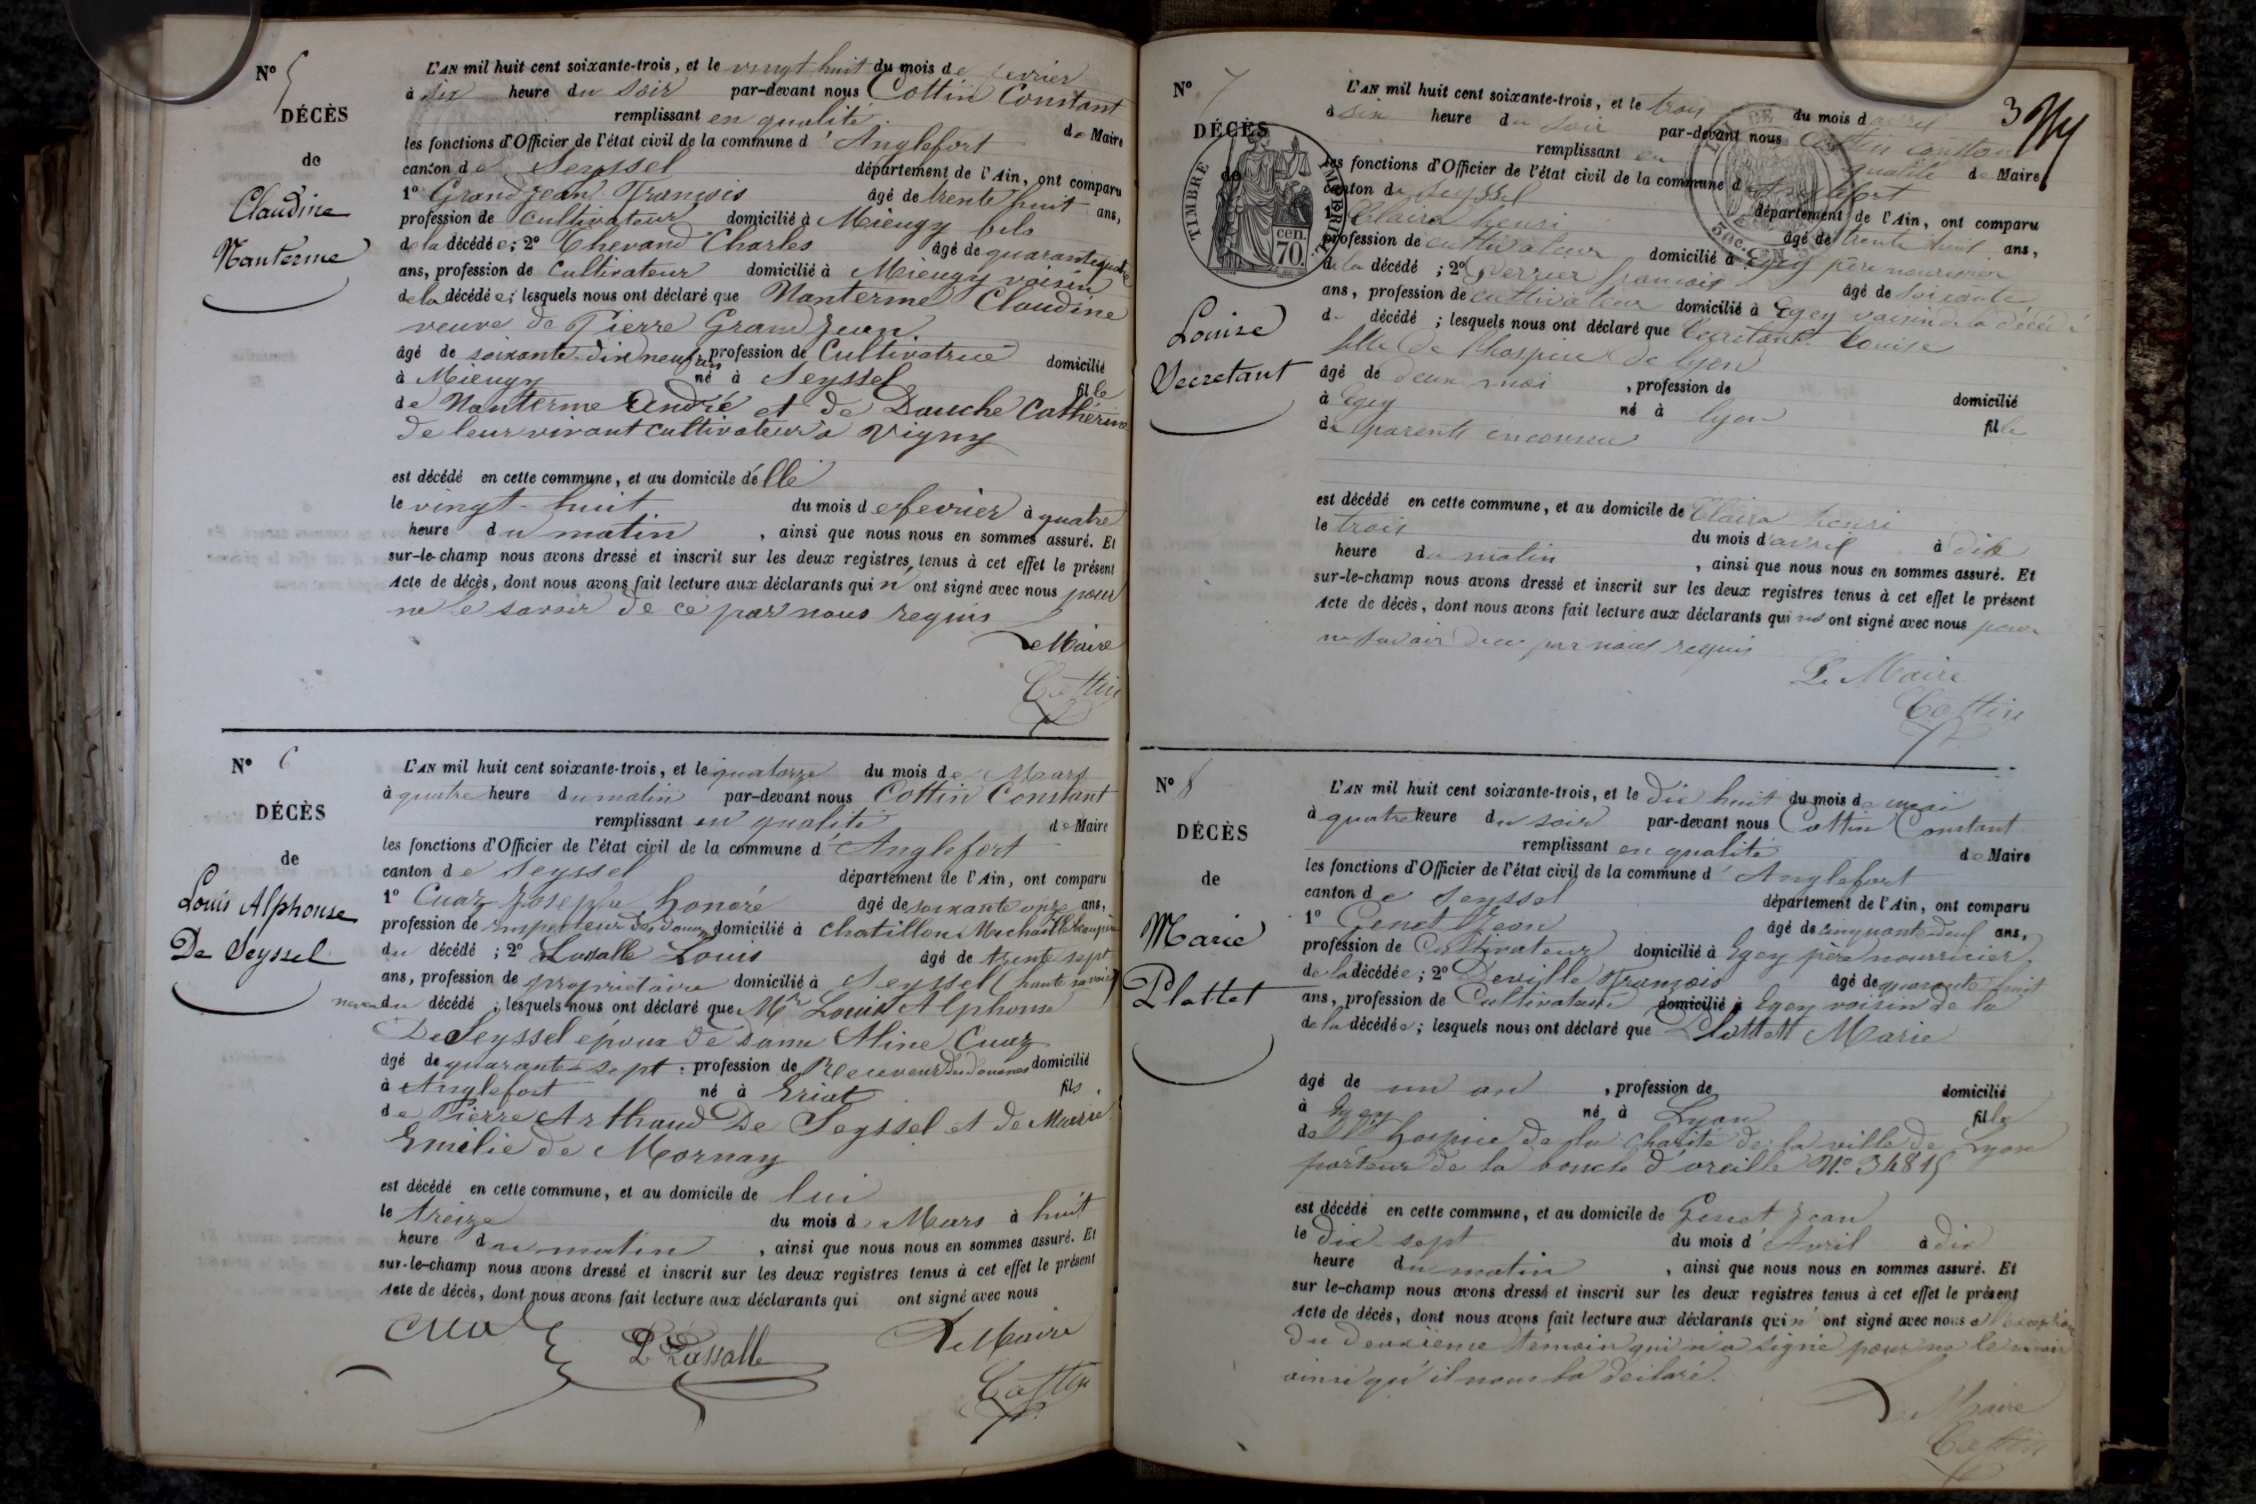 N° 5
DÉCÈS
de
Claudine
Nanterme
L'AN mil huit cent soixante-trois, et le vingt huit du mois de fevrier
à six heure du soir par-devant nous Cottin Constant
remplissant en qualité de Maire
les fonctions d'Officier de l'état civil de la commune d'Anglefort
canton de Seyssel département de l'Ain, ont comparu
1° Grandjean François âgé de trente huit ans,
profession de cultivateur domicilié à Mieugy fils
de la décédée; 2° Chevand Charles âgé de quarante quatre
ans, profession de cultivateur domicilié à Mieugy voisin
de la décédée; lesquels nous ont déclaré que Nanterme Claudine
veuve de Pierre Grand Jean
âgé de soixante dix neuf ans profession de Cultivatrice domicilié
à Mieugy né à Seyssel fille
de Nanterme André et de Douche Catherine
de leur vivant cultivateur a Vigny
est décédé en cette commune, et au domicile d'élle
le vingt-huit du mois de fevrier à quatre
heure du matin, ainsi que nous nous en sommes assuré. Et
sur-le-champ nous avons dressé et inscrit sur les deux registres tenus à cet effet le présent
Acte de décès, dont nous avons fait lecture aux déclarants qui n'ont signé avec nous pour
ne le savoir de ce par nous requis
Le Maire
Cottin
N° 6
DÉCÈS
de
Louis Alphonse
De Seyssel
L'AN mil huit cent soixante-trois, et le quatorze du mois de Mars
à quatre heure du matin par-devant nous Cottin Constant
remplissant en qualité de Maire
les fonctions d'Officier de l'état civil de la commune d'Anglefort
canton de Seyssel département de l'Ain, ont comparu
1° Cuaz Joseph Honoré âgé de soixante onze ans,
profession de des Douanes domicilié à Chatillon Michaille
du décédé; 2° Lassalle Louis âgé de trente sept
ans, profession de propriétaire domicilié à Seyssel (haute savoie)
neveu du décédé; lesquels nous ont déclaré que Mr Louis Alphonse
De Seyssel époux de Dame Aline Cuaz
âgé de quarante-sept, profession de Receveur des douanes domicilié
à Anglefort né à Eriat fils
de Pierre Arthaud De Seyssel et de Marie
Emilie de Mornay
est décédé en cette commune, et au domicile de lui
le treize du mois de Mars à huit
heure du matin, ainsi que nous nous en sommes assuré. Et
sur-le-champ nous avons dressé et inscrit sur les deux registres tenus à cet effet le présent
Acte de décès, dont nous avons fait lecture aux déclarants qui ont signé avec nous
Cuaz L Lassalle Le Maire
Cottin
N° 7
DÉCÈS
de
Louise
Secretant
TIMBRE IMPÉRIAL
70 cen.
L'AN mil huit cent soixante-trois, et le trois du mois d'avril
à six heure du soir par-devant nous Cottin constant
remplissant en qualité de Maire
les fonctions d'Officier de l'état civil de la commune d'Anglefort
canton de Seyssel département de l'Ain, ont comparu
1° Claira henri âgé de trente huit ans,
profession de cultivateur domicilié à Egey père nourricier
de la décédé; 2° Perrier francois âgé de soixante
ans, profession de cultivateur domicilié à Egey voisin de la décédé
d décédé; lesquels nous ont déclaré que Secretant Louise
fille de l'hospice de lyon
âgé de deux moi, profession de domicilié
à Egey né à lyon fille
de parents inconnu
est décédé en cette commune, et au domicile de Claira henri
le trois du mois d'avril à dix
heure du matin, ainsi que nous nous en sommes assuré. Et
sur-le-champ nous avons dressé et inscrit sur les deux registres tenus à cet effet le présent
Acte de décès, dont nous avons fait lecture aux déclarants qui ont signé avec nous pour
ne savoir de ce par nous requis
Le Maire
Cottin
N° 8
DÉCÈS
de
Marie
Plattet
L'AN mil huit cent soixante-trois, et le dix huit du mois de mai
à quatre heure du soir par-devant nous Cottin Constant
remplissant en qualité de Maire
les fonctions d'Officier de l'état civil de la commune d'Anglefort
canton de Seyssel département de l'Ain, ont comparu
1° Genet Jean âgé de cinquante-deux ans,
profession de Cultivateur domicilié à Egey père nourricier
de la décédée; 2° Deville François âgé de quarante huit
ans, profession de Cultivateur domicilié à Egey voisin de la
de la décédée; lesquels nous ont déclaré que Plattett Marie
âgé de un an, profession de domicilié
à Egey né à Lyon fille
de l'hospice de la charité de la ville de Lyon
porteur de la boucle d'oreille N° 34815
est décédé en cette commune, et au domicile de Genet Jean
le dix sept du mois d'Avril à dix
heure du matin, ainsi que nous nous en sommes assuré. Et
sur le-champ nous avons dressé et inscrit sur les deux registres tenus à cet effet le présent
Acte de décès, dont nous avons fait lecture aux déclarants qui n'ont signé avec nous a l'exception
du deuxième témoin qui n'a signé pour ne le savoir
ainsi qu'il nous la déclaré.
Le Maire
Cottin